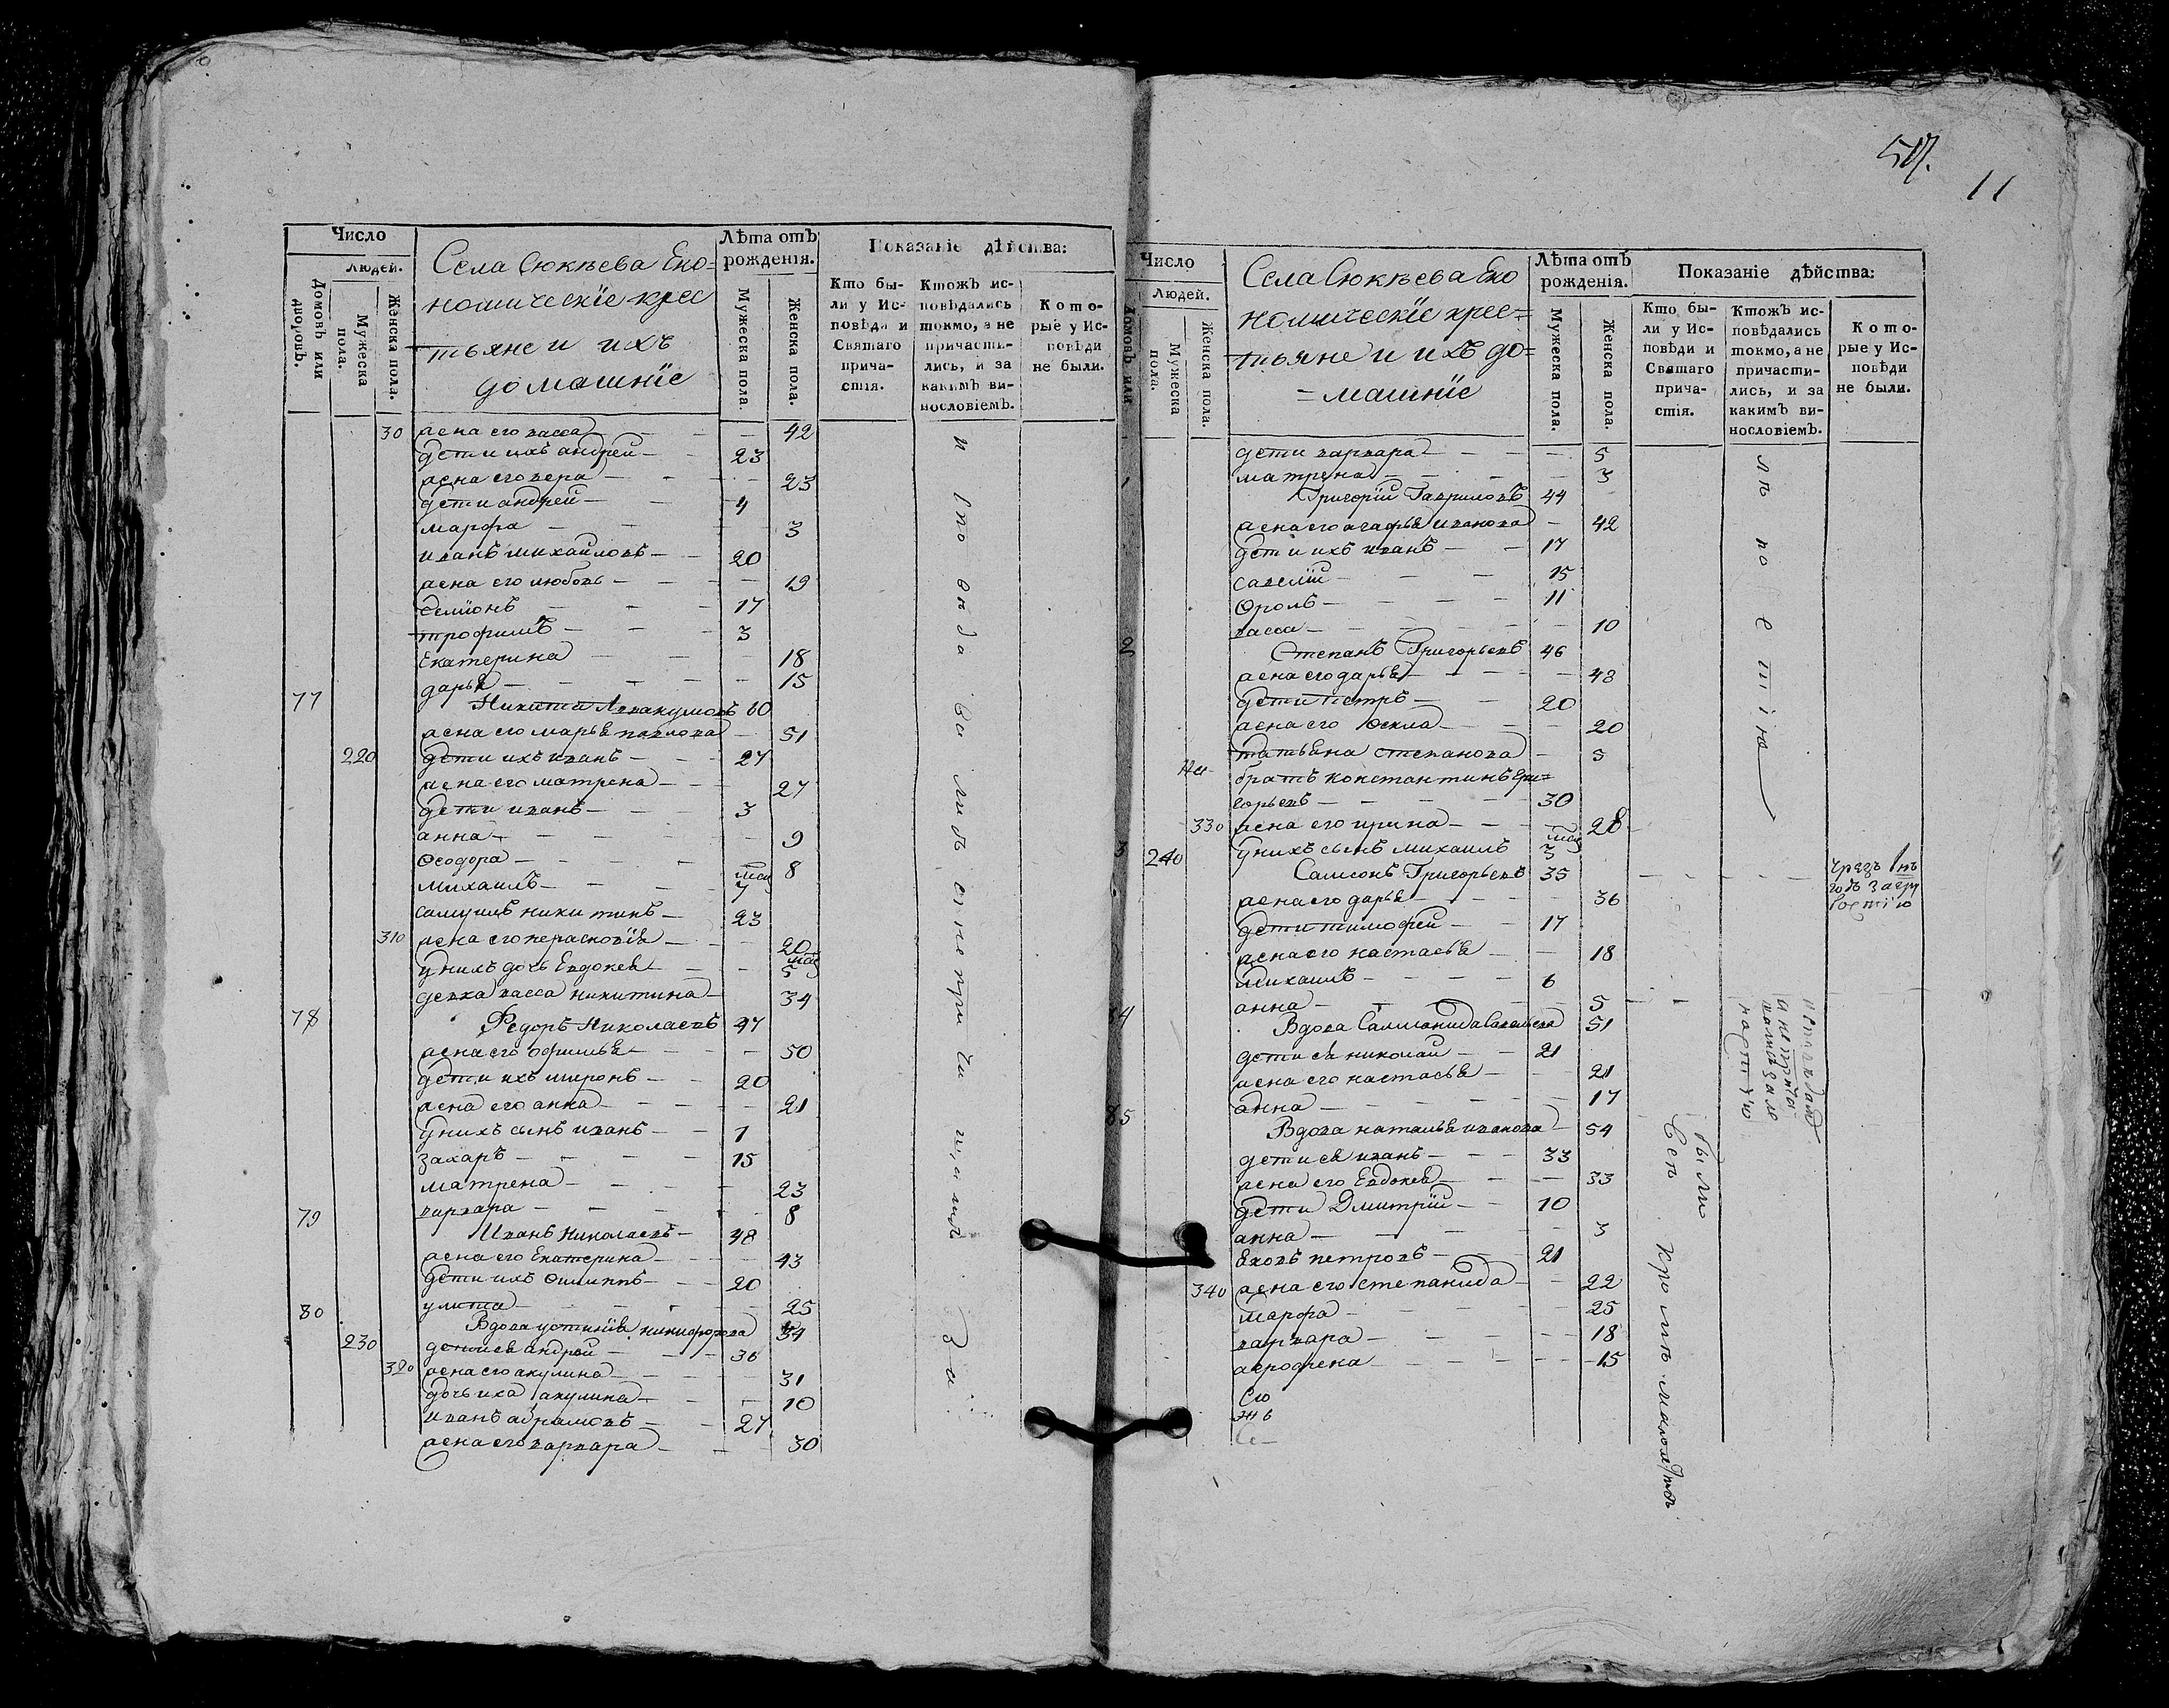 Число
Людей.
Домовъ или дворовъ.
Мужеска пола.
Женска пола.
Села Сюкѣева Еко-
номическїе крес
тьяне и ихъ
домашнїе
Лѣта отъ рожденія.
Мужеска пола.
Женска пола.
Показаніе дѣйства:
Кто бы-
ли у Ис-
повѣди и
Святаго
прича-
стія.
Ктожъ ис-
повѣдались
токмо, а не
причасти-
лись, и за
какимъ ви-
нословіемъ.
Кото-
рые у Ис-
повѣди
не были.
30 жена его васса 42
дети ихъ андрей 23
жена его вера 23
дети андрей 4
марфа 3
иванъ михайловъ 20
жена его любовь 19
семионъ 17
трофимъ 3
Екатерина 18
дарья 15
77 Никита Аввакумовъ 60
жена его марья павлова 51
220 дети ихъ иванъ 27
жена его матрена 27
дети иванъ 3
анна 9
Ѳеодора 8
михаилъ 7
самуилъ никитинъ 23
310 жена его парасковїя 20
у нихъ дочь Евдокея 5
девка васса никитина 34
78 Федоръ Николаевъ 47
жена его офимья 50
дети ихъ миронъ 20
жена его анна 21
у нихъ сынъ иванъ 1
захаръ 15
матрена 23
варвара 8
79 Иванъ Николаевъ 48
жена его Екатерина 43
дети ихъ филиппъ 20
улита 25
80 Вдова устинїя никифорова 54
230 дети ея андрей 36
320 жена его акулина 31
дочь ихъ акулина 10
иванъ абрамовъ 27
жена его варвара 30
517.
11
Число
Людей.
Домовъ или
Мужеска пола.
Женска пола.
Села Сюкѣева Еко
номическїе крес=
тьяне и ихъ до=
=машнїе
Лѣта отъ рожденія.
Мужеска пола.
Женска пола.
Показаніе дѣйства:
Кто бы-
ли у Ис-
повѣди и
Святаго
прича-
стія.
Ктожъ ис-
повѣдались
токмо, а не
причасти-
лись, и за
какимъ ви-
нословіемъ.
Кото-
рые у Ис-
повѣди
не были.
дети варвара 5
матрена 3
Григорїй Гавриловъ 44
жена его агафья иванова 42
дети ихъ иванъ 17
савелїй 15
Фролъ 11
васса 10
2 Степанъ Григорьевъ 46
жена его дарья 48
дети Петръ 20
жена его Фекла 20
татьяна степанова 5
братъ константинъ гри=
горьевъ 30
330 жена его ирина 28
3 240 у нихъ сынъ михаилъ 3
Самсонъ Григорьевъ 35
жена его дарья 36
дети тимофей 17
жена его настасья 18
михаилъ 6
анна 5
4 Вдова Саломонида Савельева 51
дети ея николай 21
жена его настасья 21
анна 17
5 Вдова наталья иванова 54
дети ея иванъ 33
жена его Евдокея 33
дети Дмитрїй 10
анна 3
яковъ петровъ 21
340 жена его степанида 22
марфа 25
варвара 18
агрофена 15